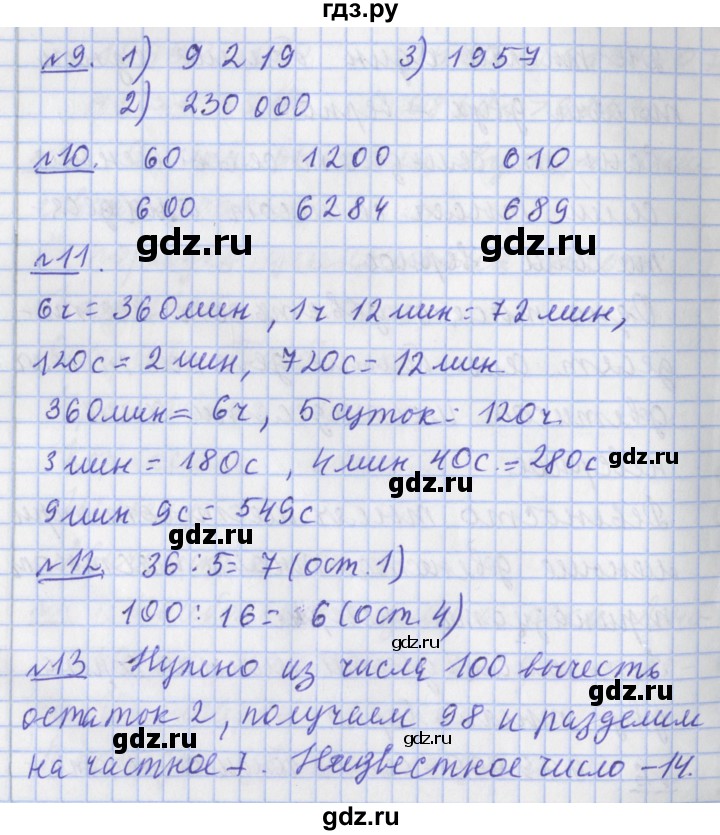 гдз.ру
№9. 1) 9 219 3) 1957
2) 230 000
№10. 60 1200 610
600 6284 689
gdz.ru gdz.ru
№11.
6ч = 360мин, 1ч 12мин = 72мин,
120с = 2мин, 720с = 12мин
360мин = 6ч, 5суток = 120ч.
3мин = 180с, 4мин 40с. = 280с
gdz.ru
gdz.ru
9мин 9с = 549с
gdz.ru
№12. 36 : 5 = 7 (ост. 1)
100 : 16 = 6 (ост. 4)
gdz.ru
№13 Нужно из числа 100 вычесть
gdz.ru
остаток 2, получаем 98 и разделим
gdz.ru gdz.ru
на частное 7. Неизвестное число – 14.
gdz.ru